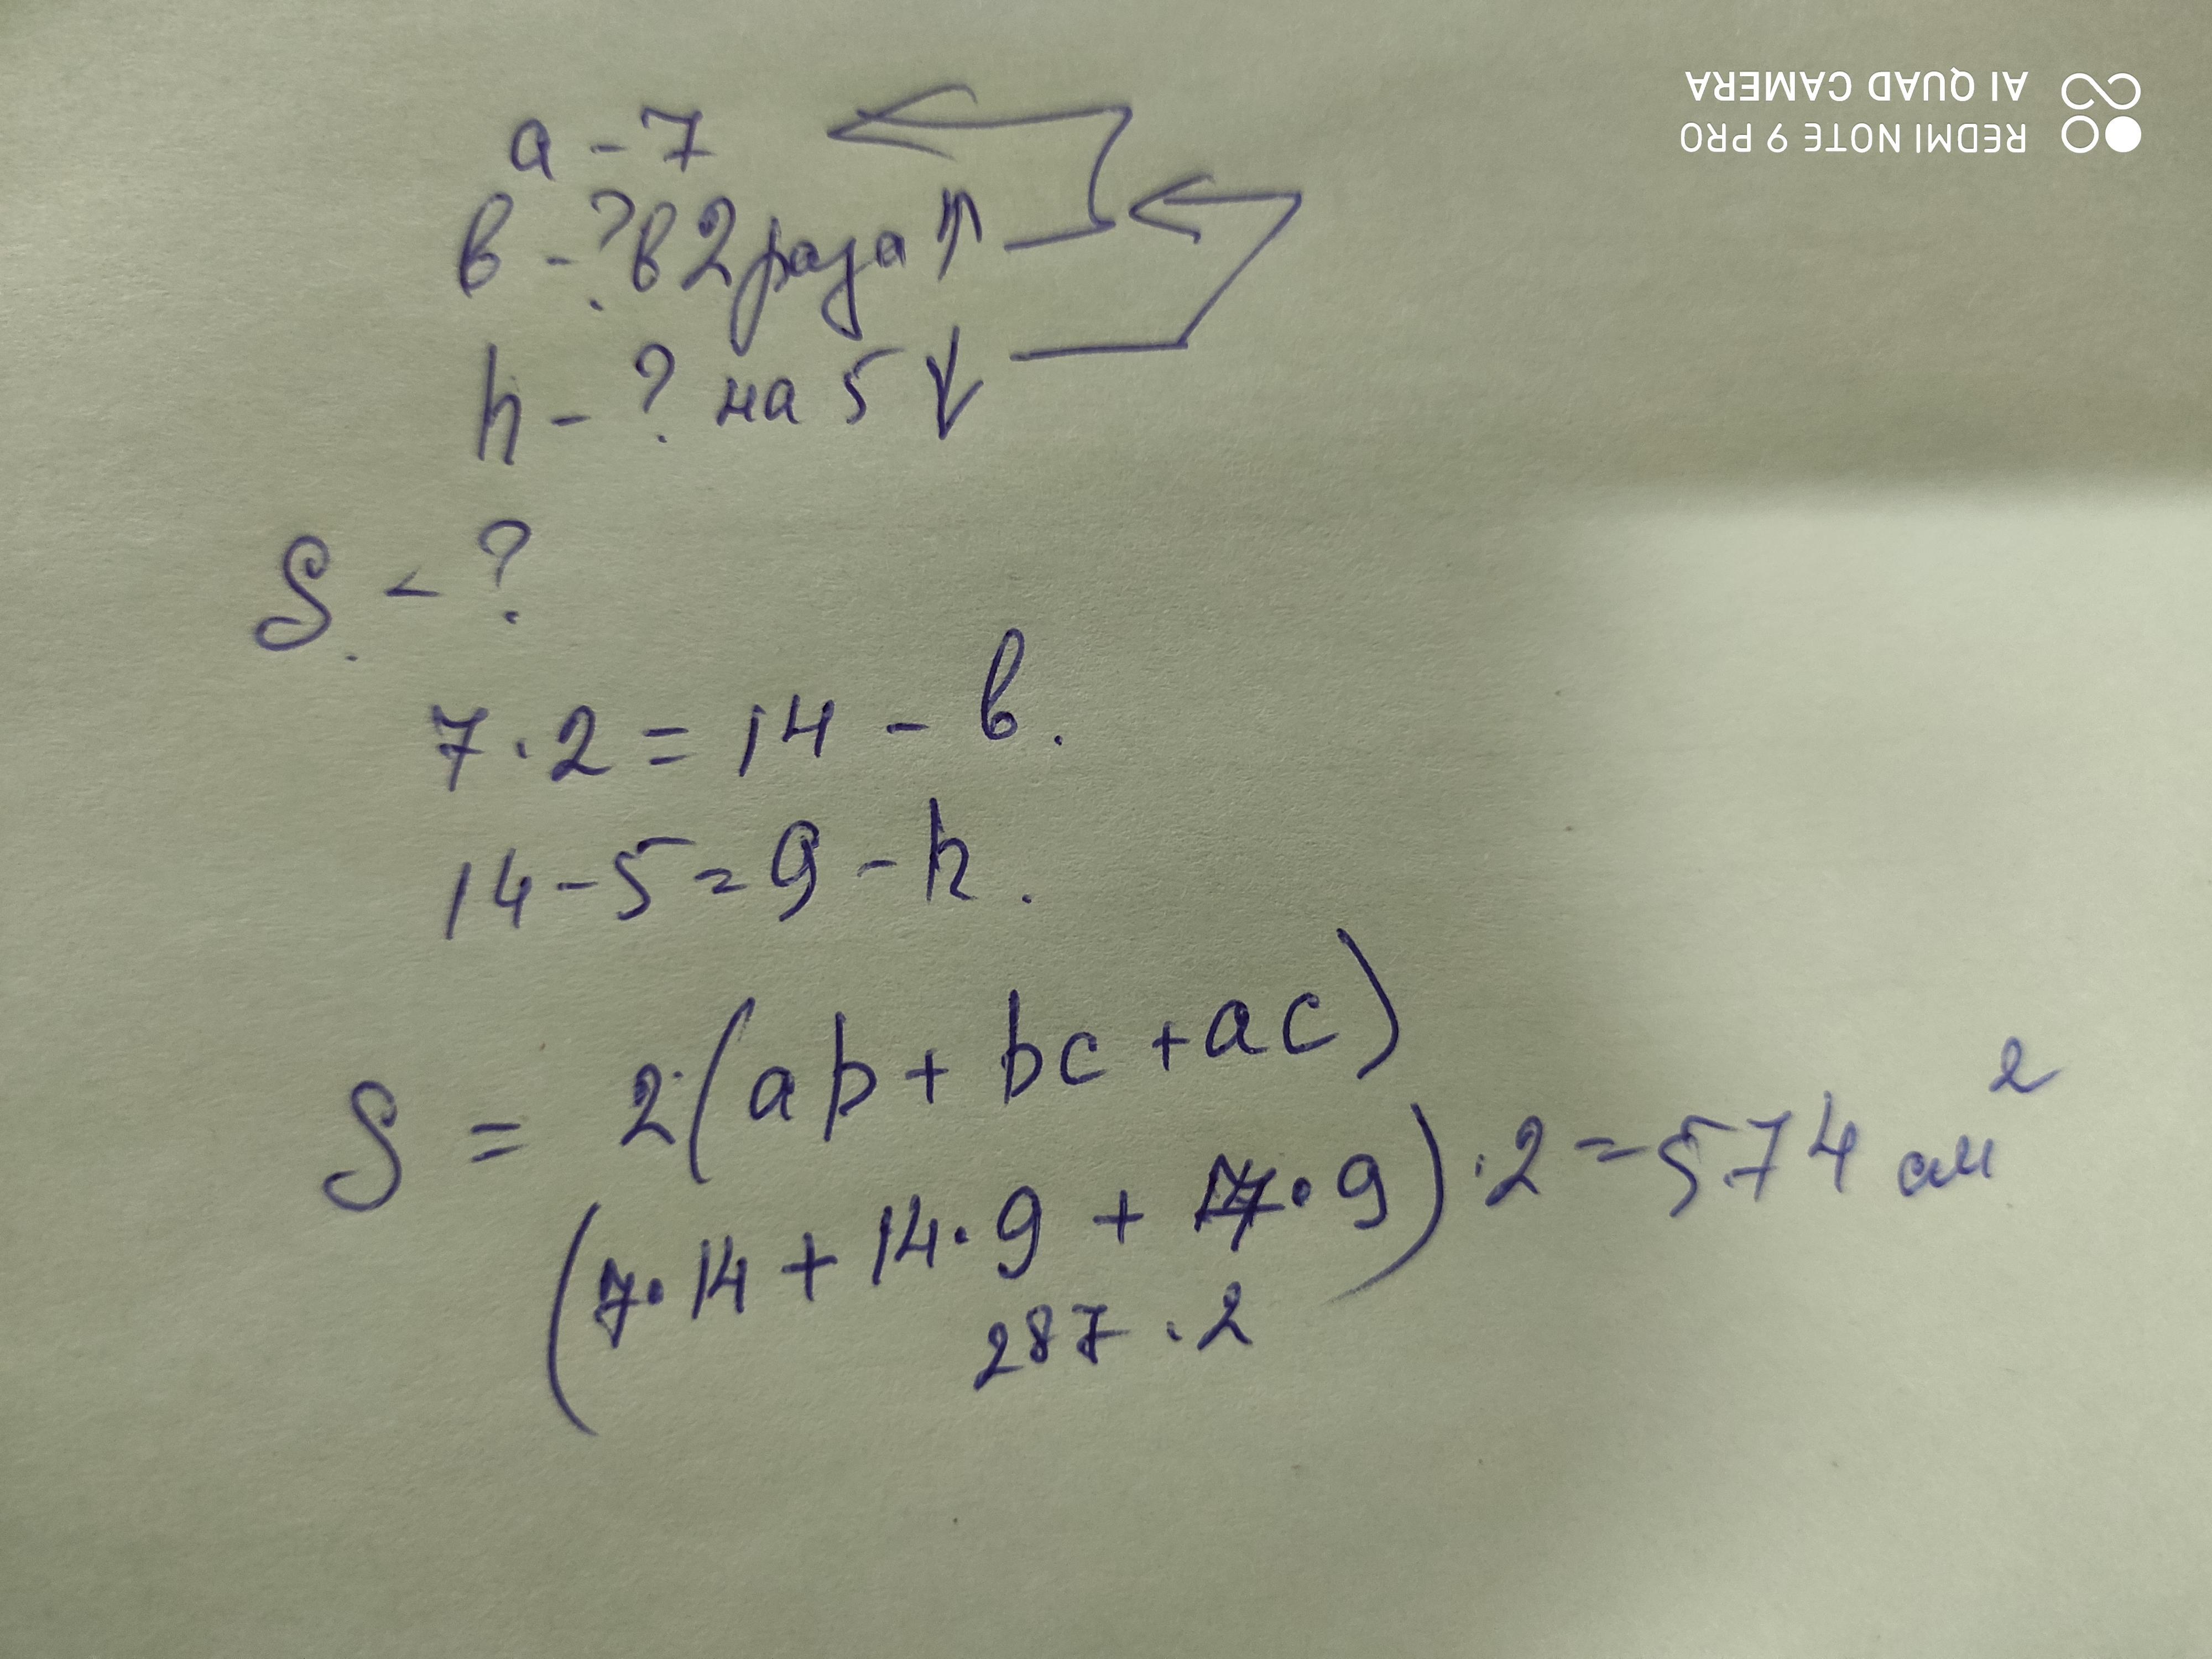 a - 7
в - ? в 2 раза ↑
h - ? на 5 ↓
S - ?
7 · 2 = 14 - в.
14 - 5 = 9 - h.
S = 2(ab + bc + ac)
(7 · 14 + 14 · 9 + 7 · 9) · 2 = 574 см²
287 · 2
REDMI NOTE 9 PRO
AI QUAD CAMERA